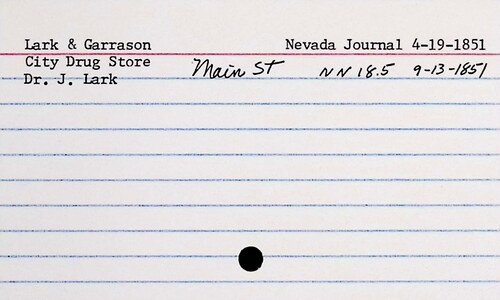 Lark & Garrason Nevada Journal 4-19-1851
City Drug Store Main St NN 18.5 9-13-1851
Dr. J. Lark